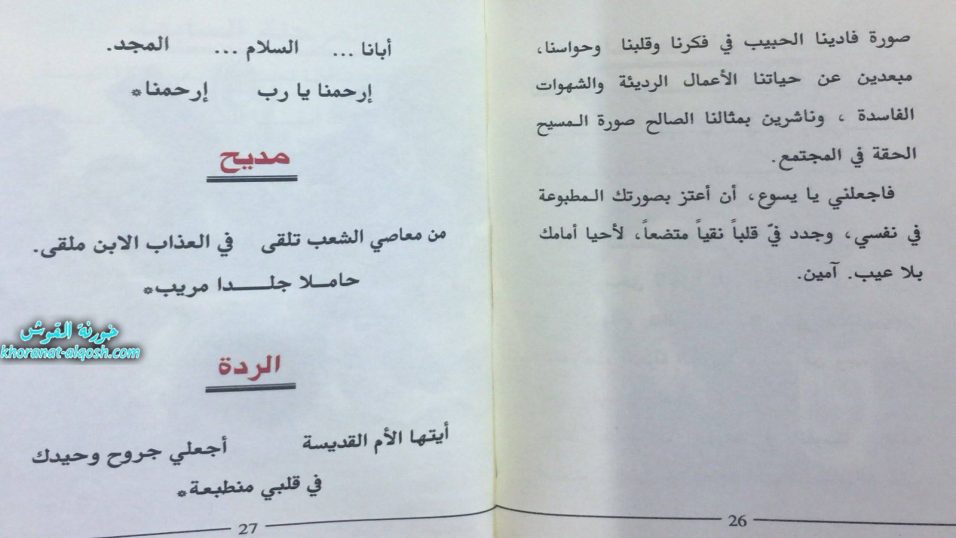 صورة فادينا الحبيب في فكرنا وقلبنا وحواسنا،
مبعدين عن حياتنا الأعمال الرديئة والشهوات
الفاسدة ، وناشرين بمثالنا الصالح صورة المسيح
الحقة في المجتمع.
فاجعلني يا يسوع، أن أعتز بصورتك المطبوعة
في نفسي، وجدد فيّ قلباً نقياً متضعاً، لأحيا أمامك
بلا عيب. آمين.
26
أبانا ... السلام ... المجد.
إرحمنا يا رب إرحمنا*
مديح
من معاصي الشعب تلقى في العذاب الابن ملقى.
حاملا جلدا مريب*
الردة
أيتها الأم القديسة أجعلي جروح وحيدك
في قلبي منطبعة*
27
خورنة القوش
khoranat-alqosh.com